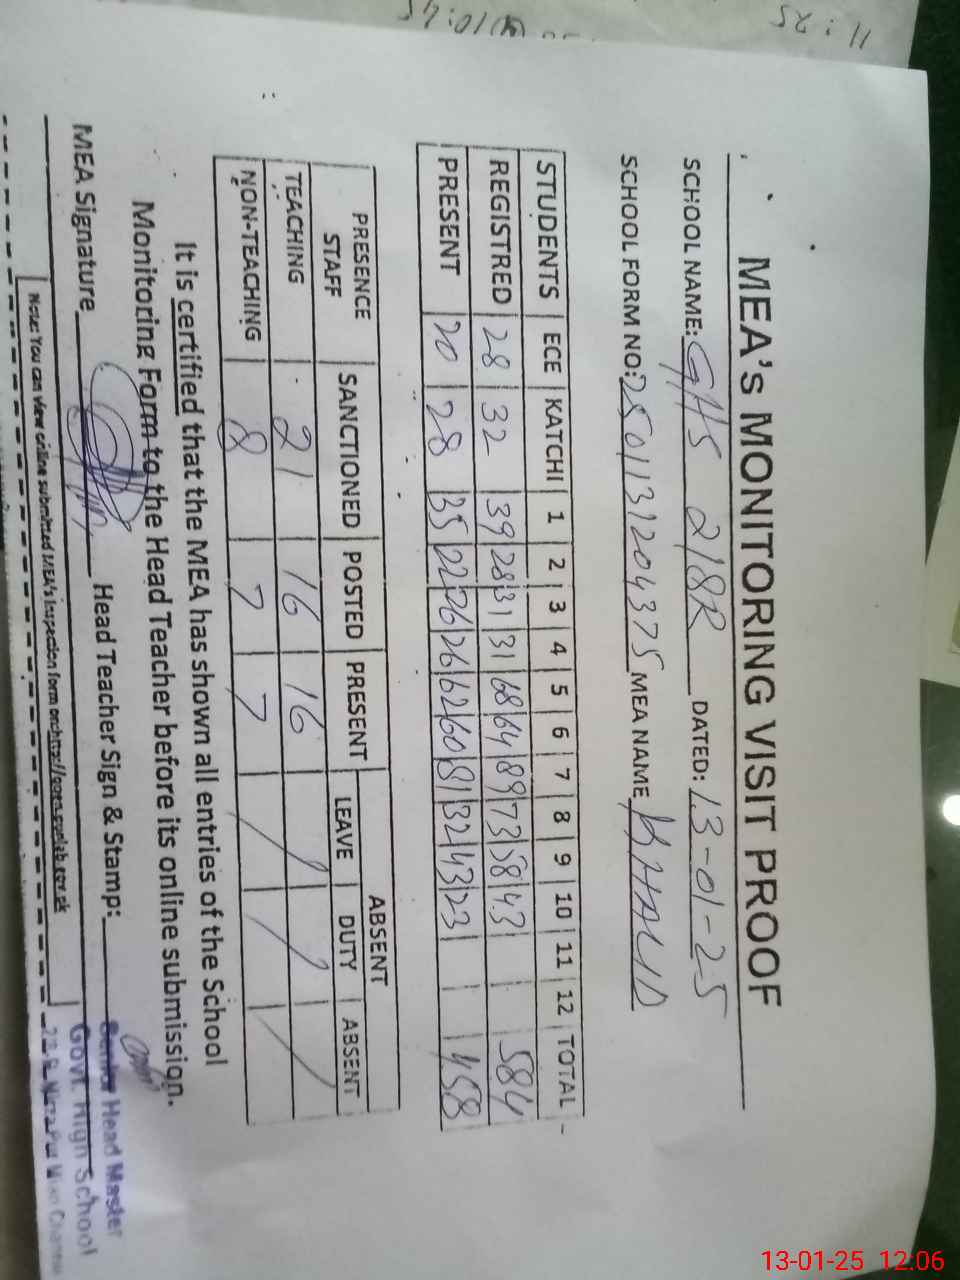 11:25
10:45
MEA's MONITORING VISIT PROOF
SCHOOL NAME: GHS 218R DATED: 13-01-25
SCHOOL FORM NO: 2501131204375 MEA NAME KHALID
STUDENTS ECE KATCHI 1 2 3 4 5 6 7 8 9 10 11 12 TOTAL
REGISTRED 28 32 39 28 31 31 68 64 89 73 58 43 584
PRESENT 20 28 35 22 26 26 62 60 81 32 43 23 458
PRESENCE STAFF SANCTIONED POSTED PRESENT ABSENT
LEAVE DUTY ABSENT
TEACHING 21 16 16
NON-TEACHING 8 7 7
It is certified that the MEA has shown all entries of the School
Monitoring Form to the Head Teacher before its online submission.
MEA Signature Head Teacher Sign & Stamp:
Senior Head Master
Govt. High School
Note: You can view online submitted MEA's inspection form on
13-01-25 12:06